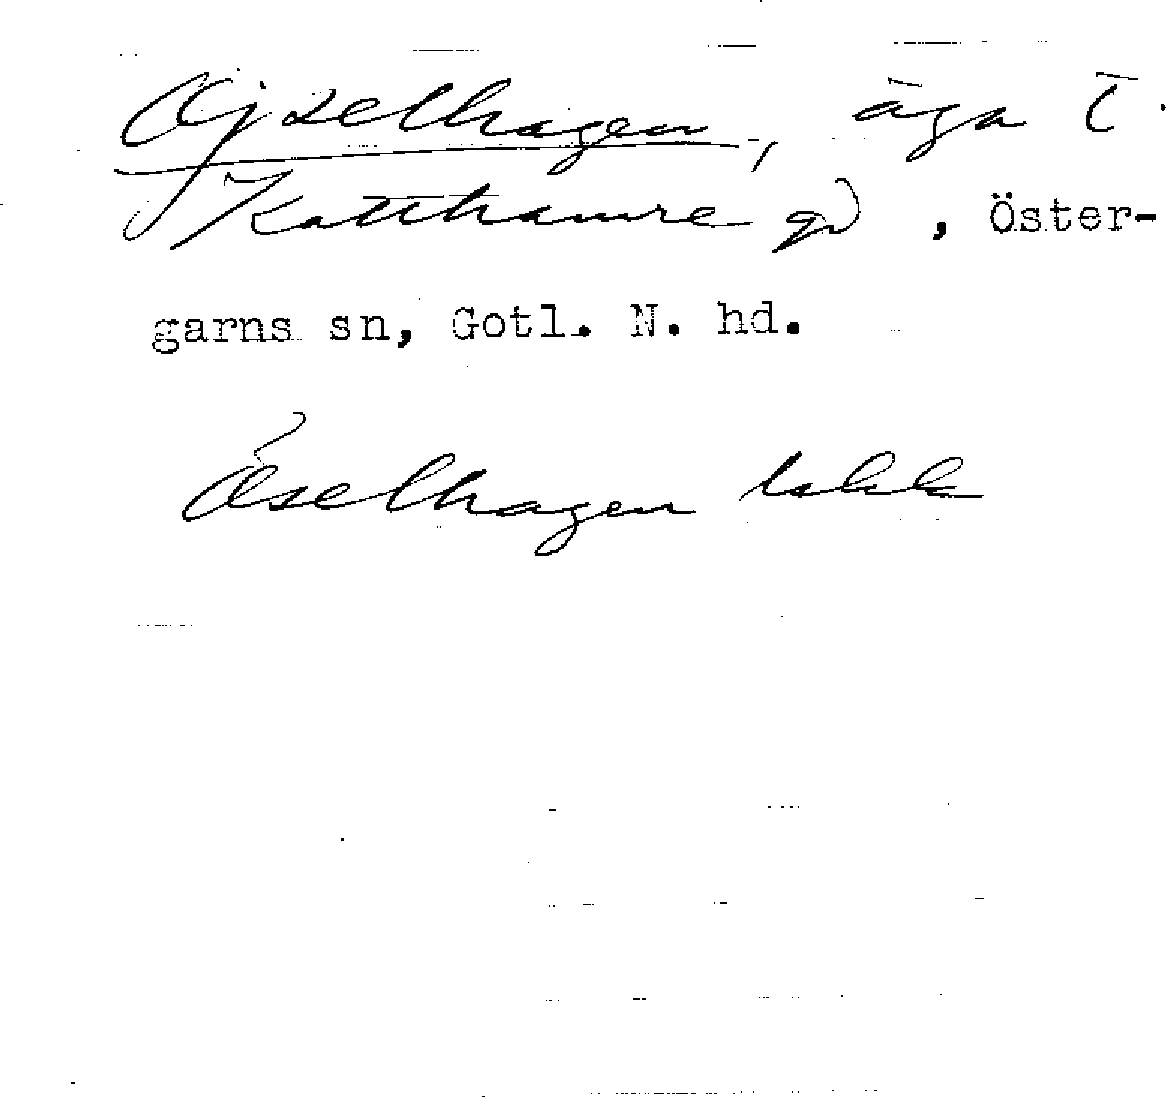 Öjselhagen, äga t.
Katthamre gd, Öster-
garns sn, Gotl. N. hd.
Öselhagen